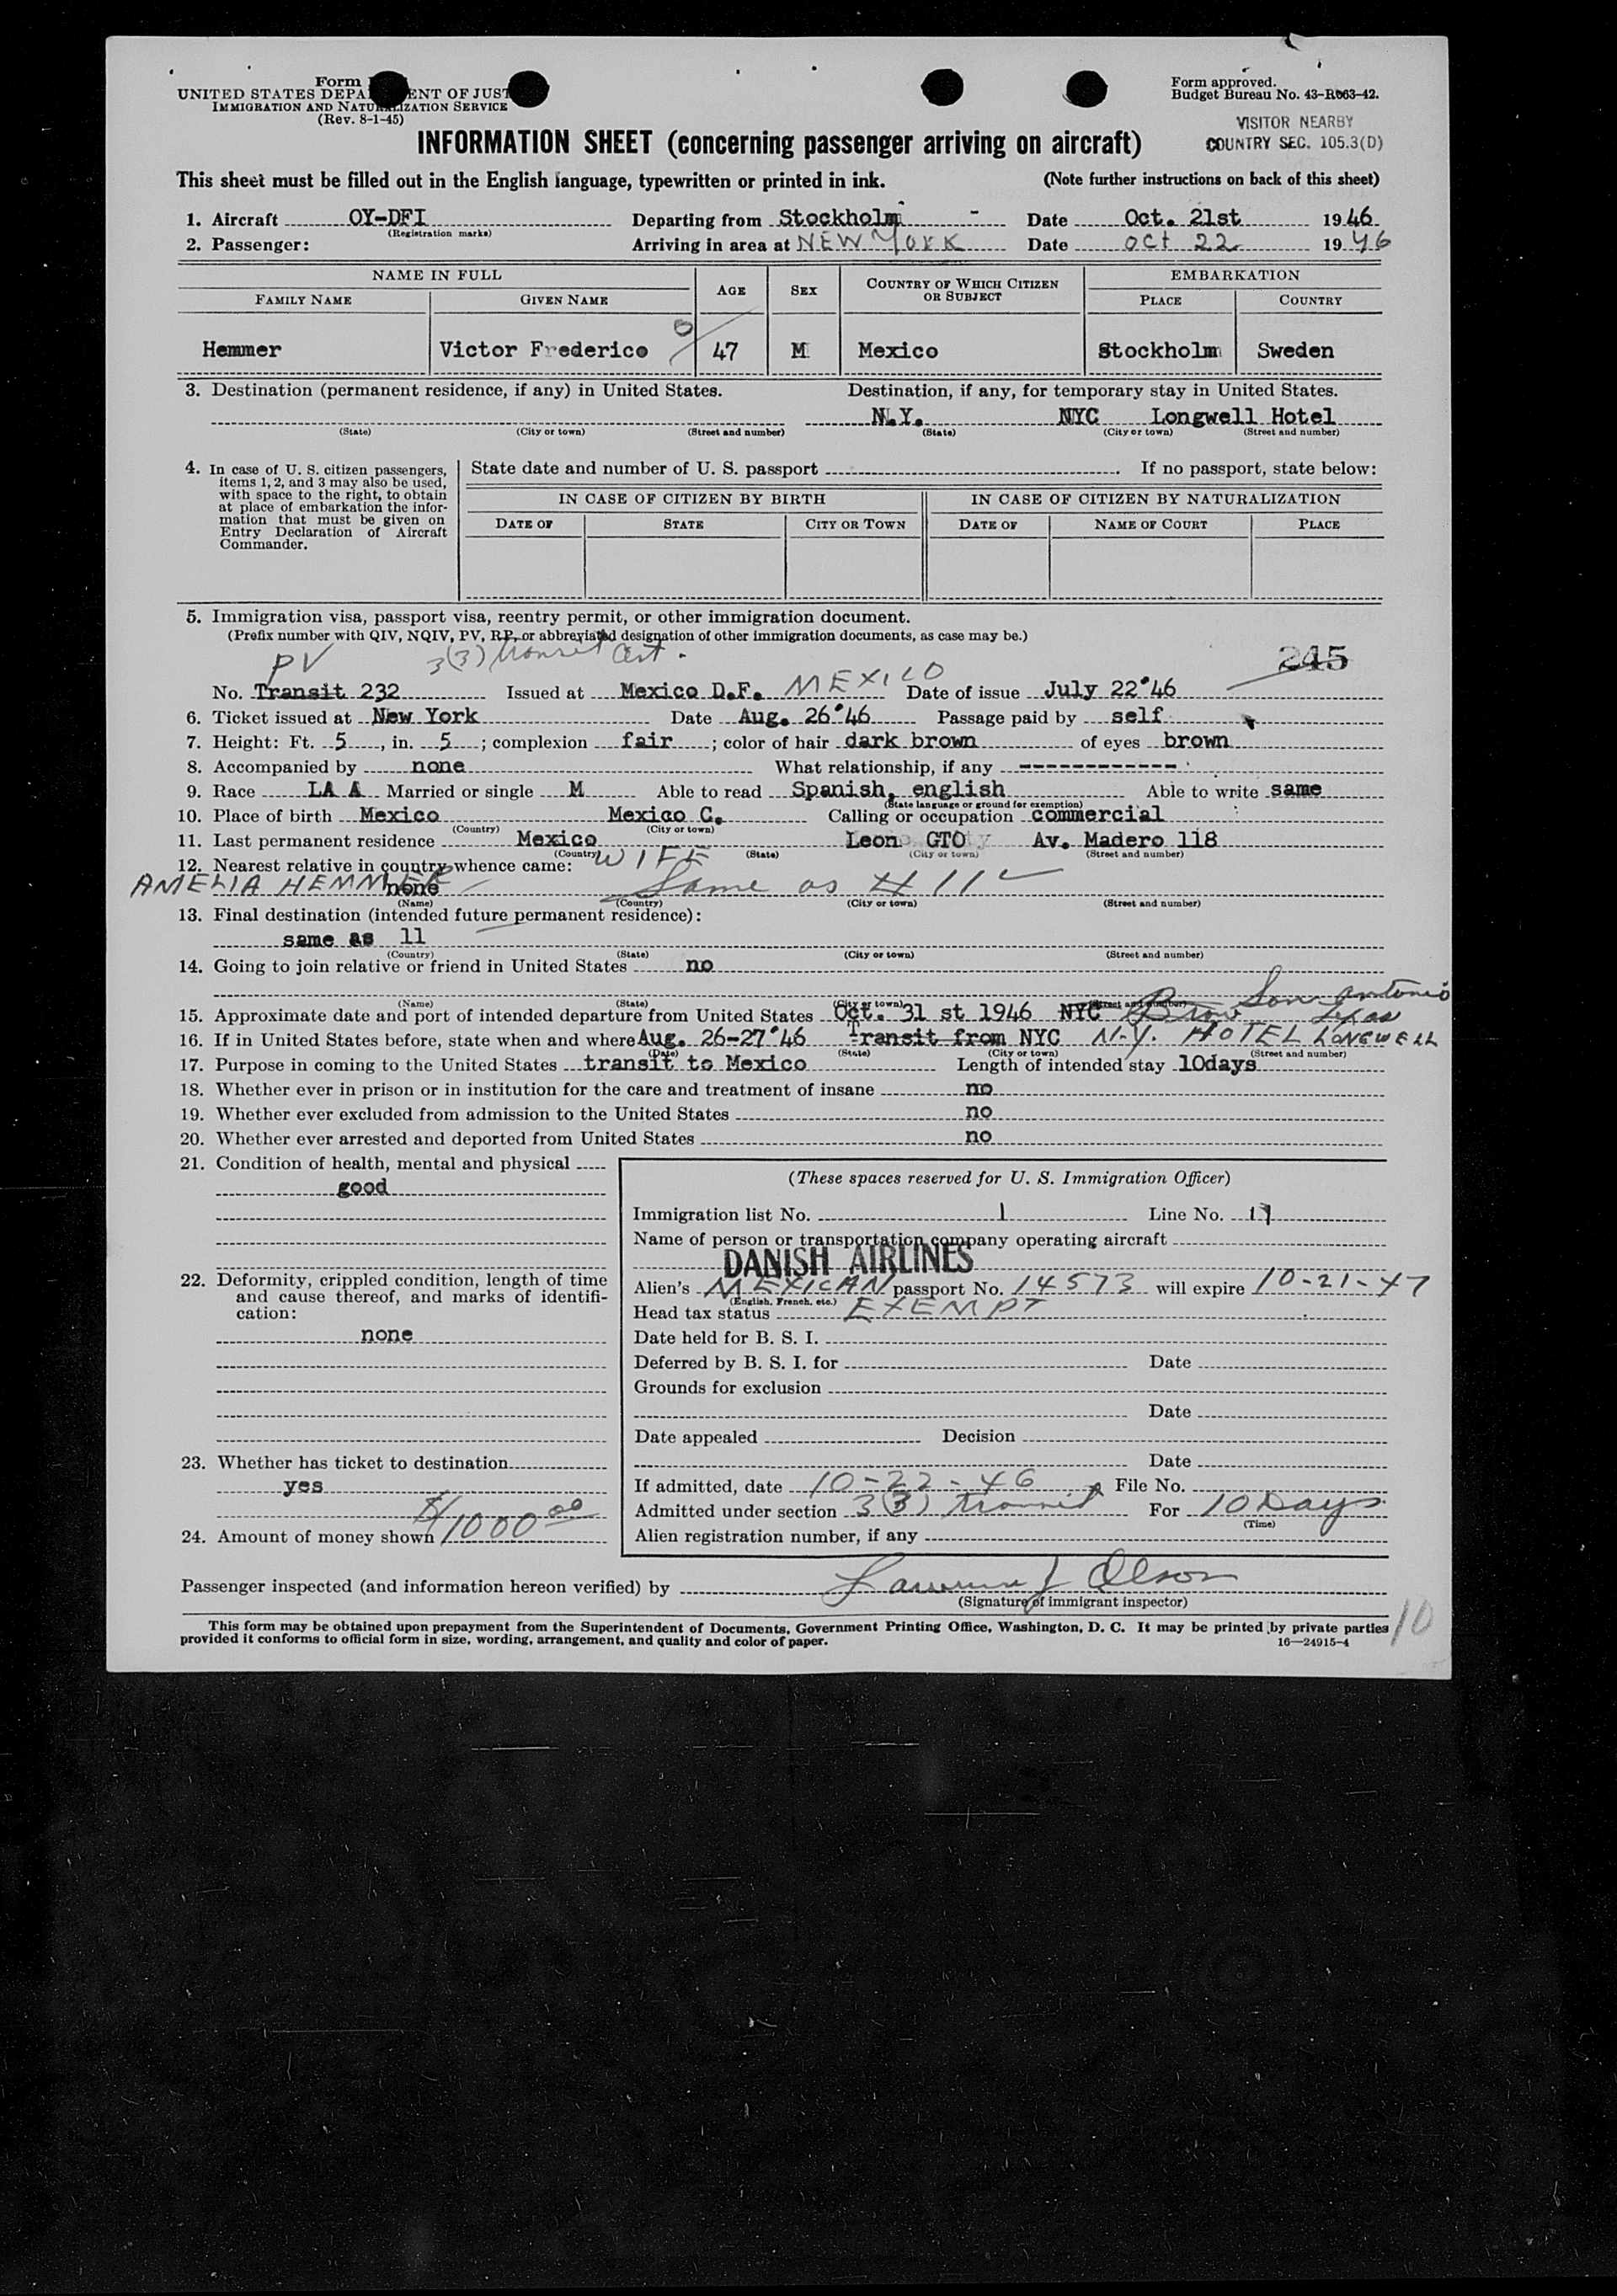 Form
UNITED STATES DEPA ENT OF JUST
IMMIGRATION AND NATURALIZATION SERVICE
(Rev. 8-1-45)
Form approved.
Budget Bureau No. 43-R063-42.
VISITOR NEARBY
COUNTRY SEC. 105.3(D)
INFORMATION SHEET (concerning passenger arriving on aircraft)
This sheet must be filled out in the English language, typewritten or printed in ink. (Note further instructions on back of this sheet)
1. Aircraft OY-DFI Departing from Stockholm - Date Oct. 21st 1946
(Registration marks)
2. Passenger: Arriving in area at NEW YORK Date OCT 22 1946
NAME IN FULL AGE SEX COUNTRY OF WHICH CITIZEN OR SUBJECT EMBARKATION
FAMILY NAME GIVEN NAME PLACE COUNTRY
Hemmer Victor Frederico 47 M Mexico Stockholm Sweden
3. Destination (permanent residence, if any) in United States. Destination, if any, for temporary stay in United States.
N.Y. NYC Longwell Hotel
(State) (City or town) (Street and number) (State) (City or town) (Street and number)
4. In case of U. S. citizen passengers, items 1, 2, and 3 may also be used, with space to the right, to obtain at place of embarkation the information that must be given on Entry Declaration of Aircraft Commander.
State date and number of U. S. passport . If no passport, state below:
IN CASE OF CITIZEN BY BIRTH IN CASE OF CITIZEN BY NATURALIZATION
DATE OF STATE CITY OR TOWN DATE OF NAME OF COURT PLACE
5. Immigration visa, passport visa, reentry permit, or other immigration document.
(Prefix number with QIV, NQIV, PV, RP, or abbreviated designation of other immigration documents, as case may be.)
PV 3(3) transit Cert. 245
No. Transit 232 Issued at Mexico D.F. MEXICO Date of issue July 22'46
6. Ticket issued at New York Date Aug. 26'46 Passage paid by self
7. Height: Ft. 5, in. 5; complexion fair; color of hair dark brown of eyes brown
8. Accompanied by none What relationship, if any ------------
9. Race LA A Married or single M Able to read Spanish, english Able to write same
(State language or ground for exemption)
10. Place of birth Mexico Mexico C. Calling or occupation commercial
(Country) (City or town)
11. Last permanent residence Mexico Leon GTO Av. Madero 118
(Country) (State) (City or town) (Street and number)
12. Nearest relative in country whence came: WIFE
AMELIA HEMMER none Same as # 11
(Name) (Country) (City or town) (Street and number)
13. Final destination (intended future permanent residence):
same as 11
(Country) (State) (City or town) (Street and number)
14. Going to join relative or friend in United States no
(Name) (State) (City or town) (Street and number)
San Antonio
15. Approximate date and port of intended departure from United States Oct. 31 st 1946 NYC Brow Texas
16. If in United States before, state when and where Aug. 26-27'46 Transit from NYC N.Y. HOTEL LONGWELL
(Date) (State) (City or town) (Street and number)
17. Purpose in coming to the United States transit to Mexico Length of intended stay 10days
18. Whether ever in prison or in institution for the care and treatment of insane no
19. Whether ever excluded from admission to the United States no
20. Whether ever arrested and deported from United States no
21. Condition of health, mental and physical
good
22. Deformity, crippled condition, length of time and cause thereof, and marks of identification:
none
23. Whether has ticket to destination
yes
24. Amount of money shown $1000 00
(These spaces reserved for U. S. Immigration Officer)
Immigration list No. 1 Line No.
Name of person or transportation company operating aircraft
DANISH AIRLINES
Alien's MEXICAN passport No. 14573 will expire 10-21-47
(English, French, etc.)
Head tax status EXEMPT
Date held for B. S. I.
Deferred by B. S. I. for Date
Grounds for exclusion
Date
Date appealed Decision
Date
If admitted, date 10-22-46 File No.
Admitted under section 3(3) transit For 10 Days
(Time)
Alien registration number, if any
Passenger inspected (and information hereon verified) by Lawrence J Olson
(Signature of immigrant inspector)
This form may be obtained upon prepayment from the Superintendent of Documents, Government Printing Office, Washington, D. C. It may be printed by private parties
provided it conforms to official form in size, wording, arrangement, and quality and color of paper. 16—24915-4
10